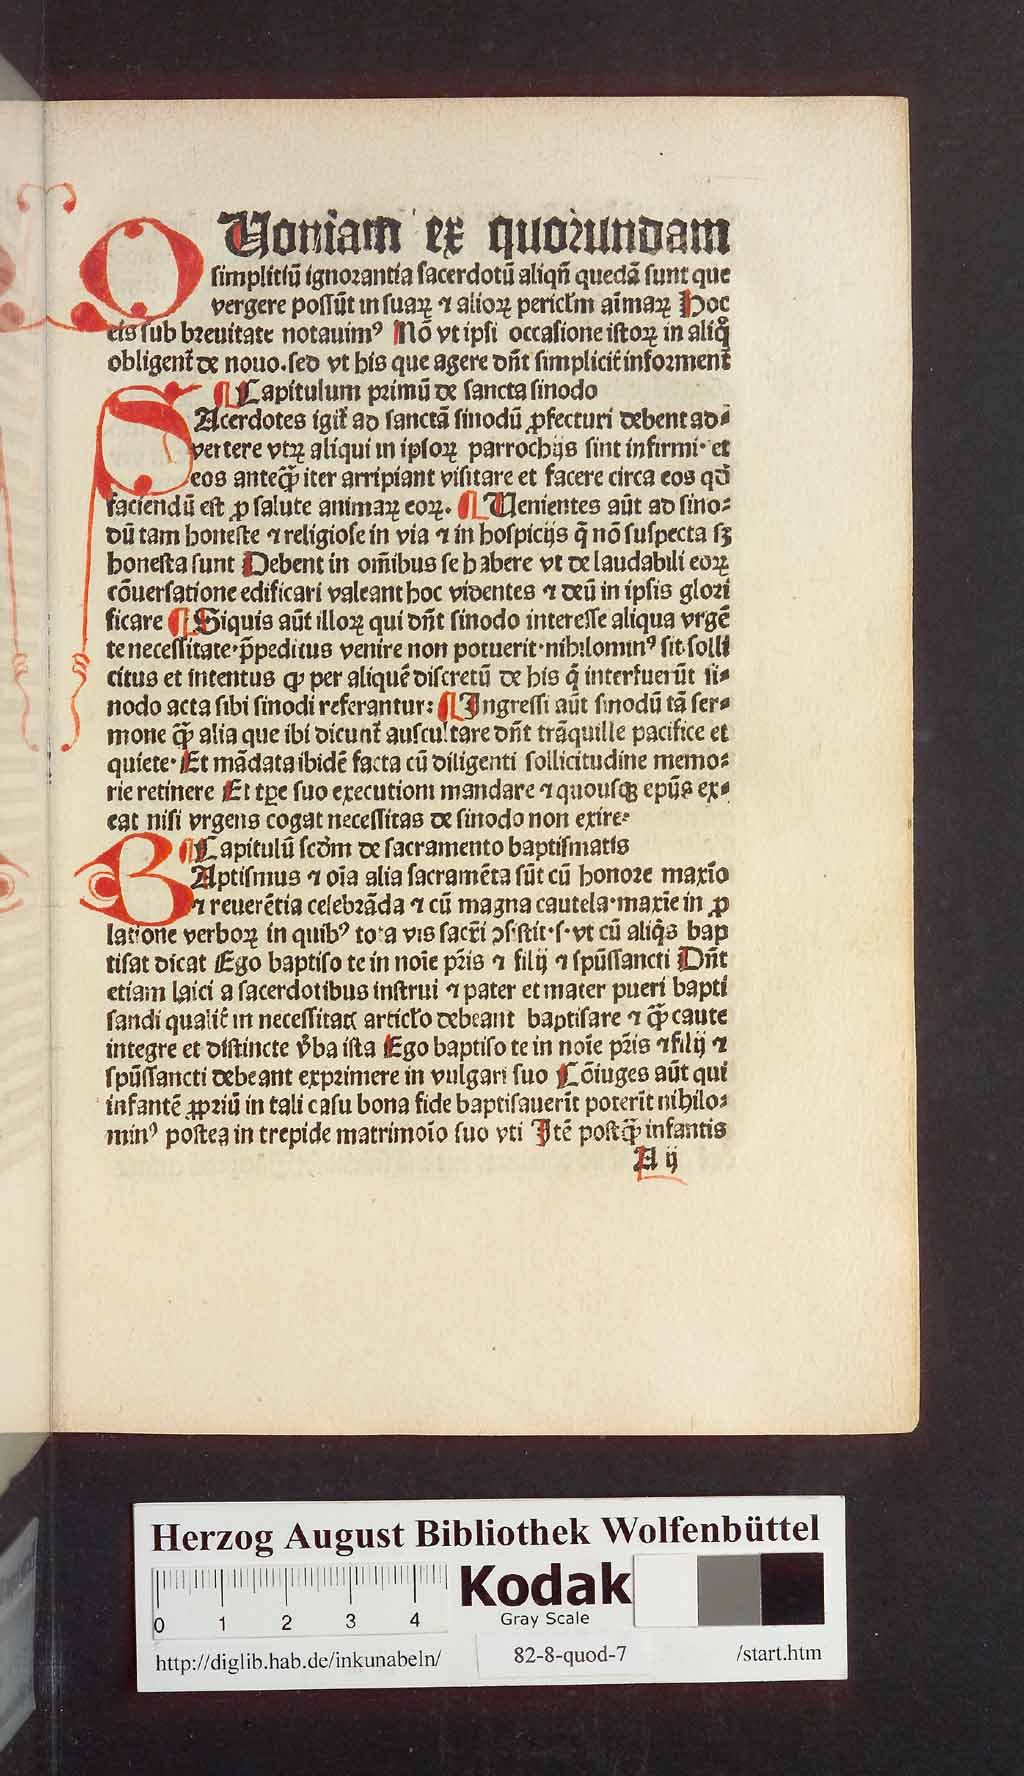 QUoniam ex quorundam
simplitiū ignorantia sacerdotū aliqñ quedā sunt que
vergere possūt in suaꝝ ⁊ alioꝝ pericl̃m aīmaꝝ Hoc
eis sub breuitate notauimꝰ Nō vt ipsi occasione istoꝝ in aliq̊
obligent̃ de nouo. sed vt his que agere dñt simplicit̃ informent̃
¶ Capitulum primū de sancta sinodo
SAcerdotes igit̃ ad sanctā sinodū ꝓfecturi debent ad⸗
vertere vtꝝ aliqui in ipsoꝝ parrochijs sint infirmi· et
eos anteq̄ꝫ iter arripiant visitare et facere circa eos qd̄
faciendū est ꝓ salute animaꝝ eoꝝ. ¶ Uenientes aūt ad sino⸗
dū tam honeste ⁊ religiose in via ⁊ in hospicijs q̄ nō suspecta sꝫ
honesta sunt Debent in om̄ibus se habere vt de laudabili eoꝝ
cōuersatione edificari valeant hoc videntes ⁊ deū in ipsis glori
ficare ¶ Siquis aūt illoꝝ qui dñt sinodo interesse aliqua vrgē
te necessitate· p̄peditus venire non potuerit· nihilominꝰ sit solli
citus et intentus ꝙ per aliquē discretū de his q̄ interfuerūt si⸗
nodo acta sibi sinodi referantur: ¶ Ingressi aūt sinodū tā ser⸗
mone q̄ꝫ alia que ibi dicunt̃ auscultare dñt trāquille pacifice et
quiete· Et mādata ibidē facta cū diligenti sollicitudine memo⸗
rie retinere Et tp̄e suo executioni mandare ⁊ quousqꝫ ep̄ūs ex⸗
eat nisi vrgens cogat necessitas de sinodo non exire·
¶ Capitulū scd̄m de sacramento baptismatis
BAptismus ⁊ oīa alia sacramēta sūt cū honore maxīo
⁊ reuerētia celebrāda ⁊ cū magna cautela· maxīe in ꝓ
latione verboꝝ in quibꝰ tota vis sacr̄i ↄsistit· s· vt cū aliq̇s bap
tisat dicat Ego baptiso te in noīe pr̄is ⁊ filij ⁊ spūssancti Dñt
etiam laici a sacerdotibus instrui ⁊ pater et mater pueri bapti
sandi qualit̃ in necessitatꝭ articl̃o debeant baptisare ⁊ q̄ꝫ caute
integre et distincte v̄ba ista Ego baptiso te in noīe pr̄is ⁊ filij ⁊
spūssancti debeant exprimere in vulgari suo Cōiuges aūt qui
infantē ꝓpriū in tali casu bona fide baptisauerīt poterit nihilo⸗
minꝰ postea in trepide matrimoīo suo vti Itē postq̄ꝫ infantis
A ij
Herzog August Bibliothek Wolfenbüttel
Kodak
Gray Scale
0 1 2 3 4
http://diglib.hab.de/inkunabeln/ 82-8-quod-7 /start.htm